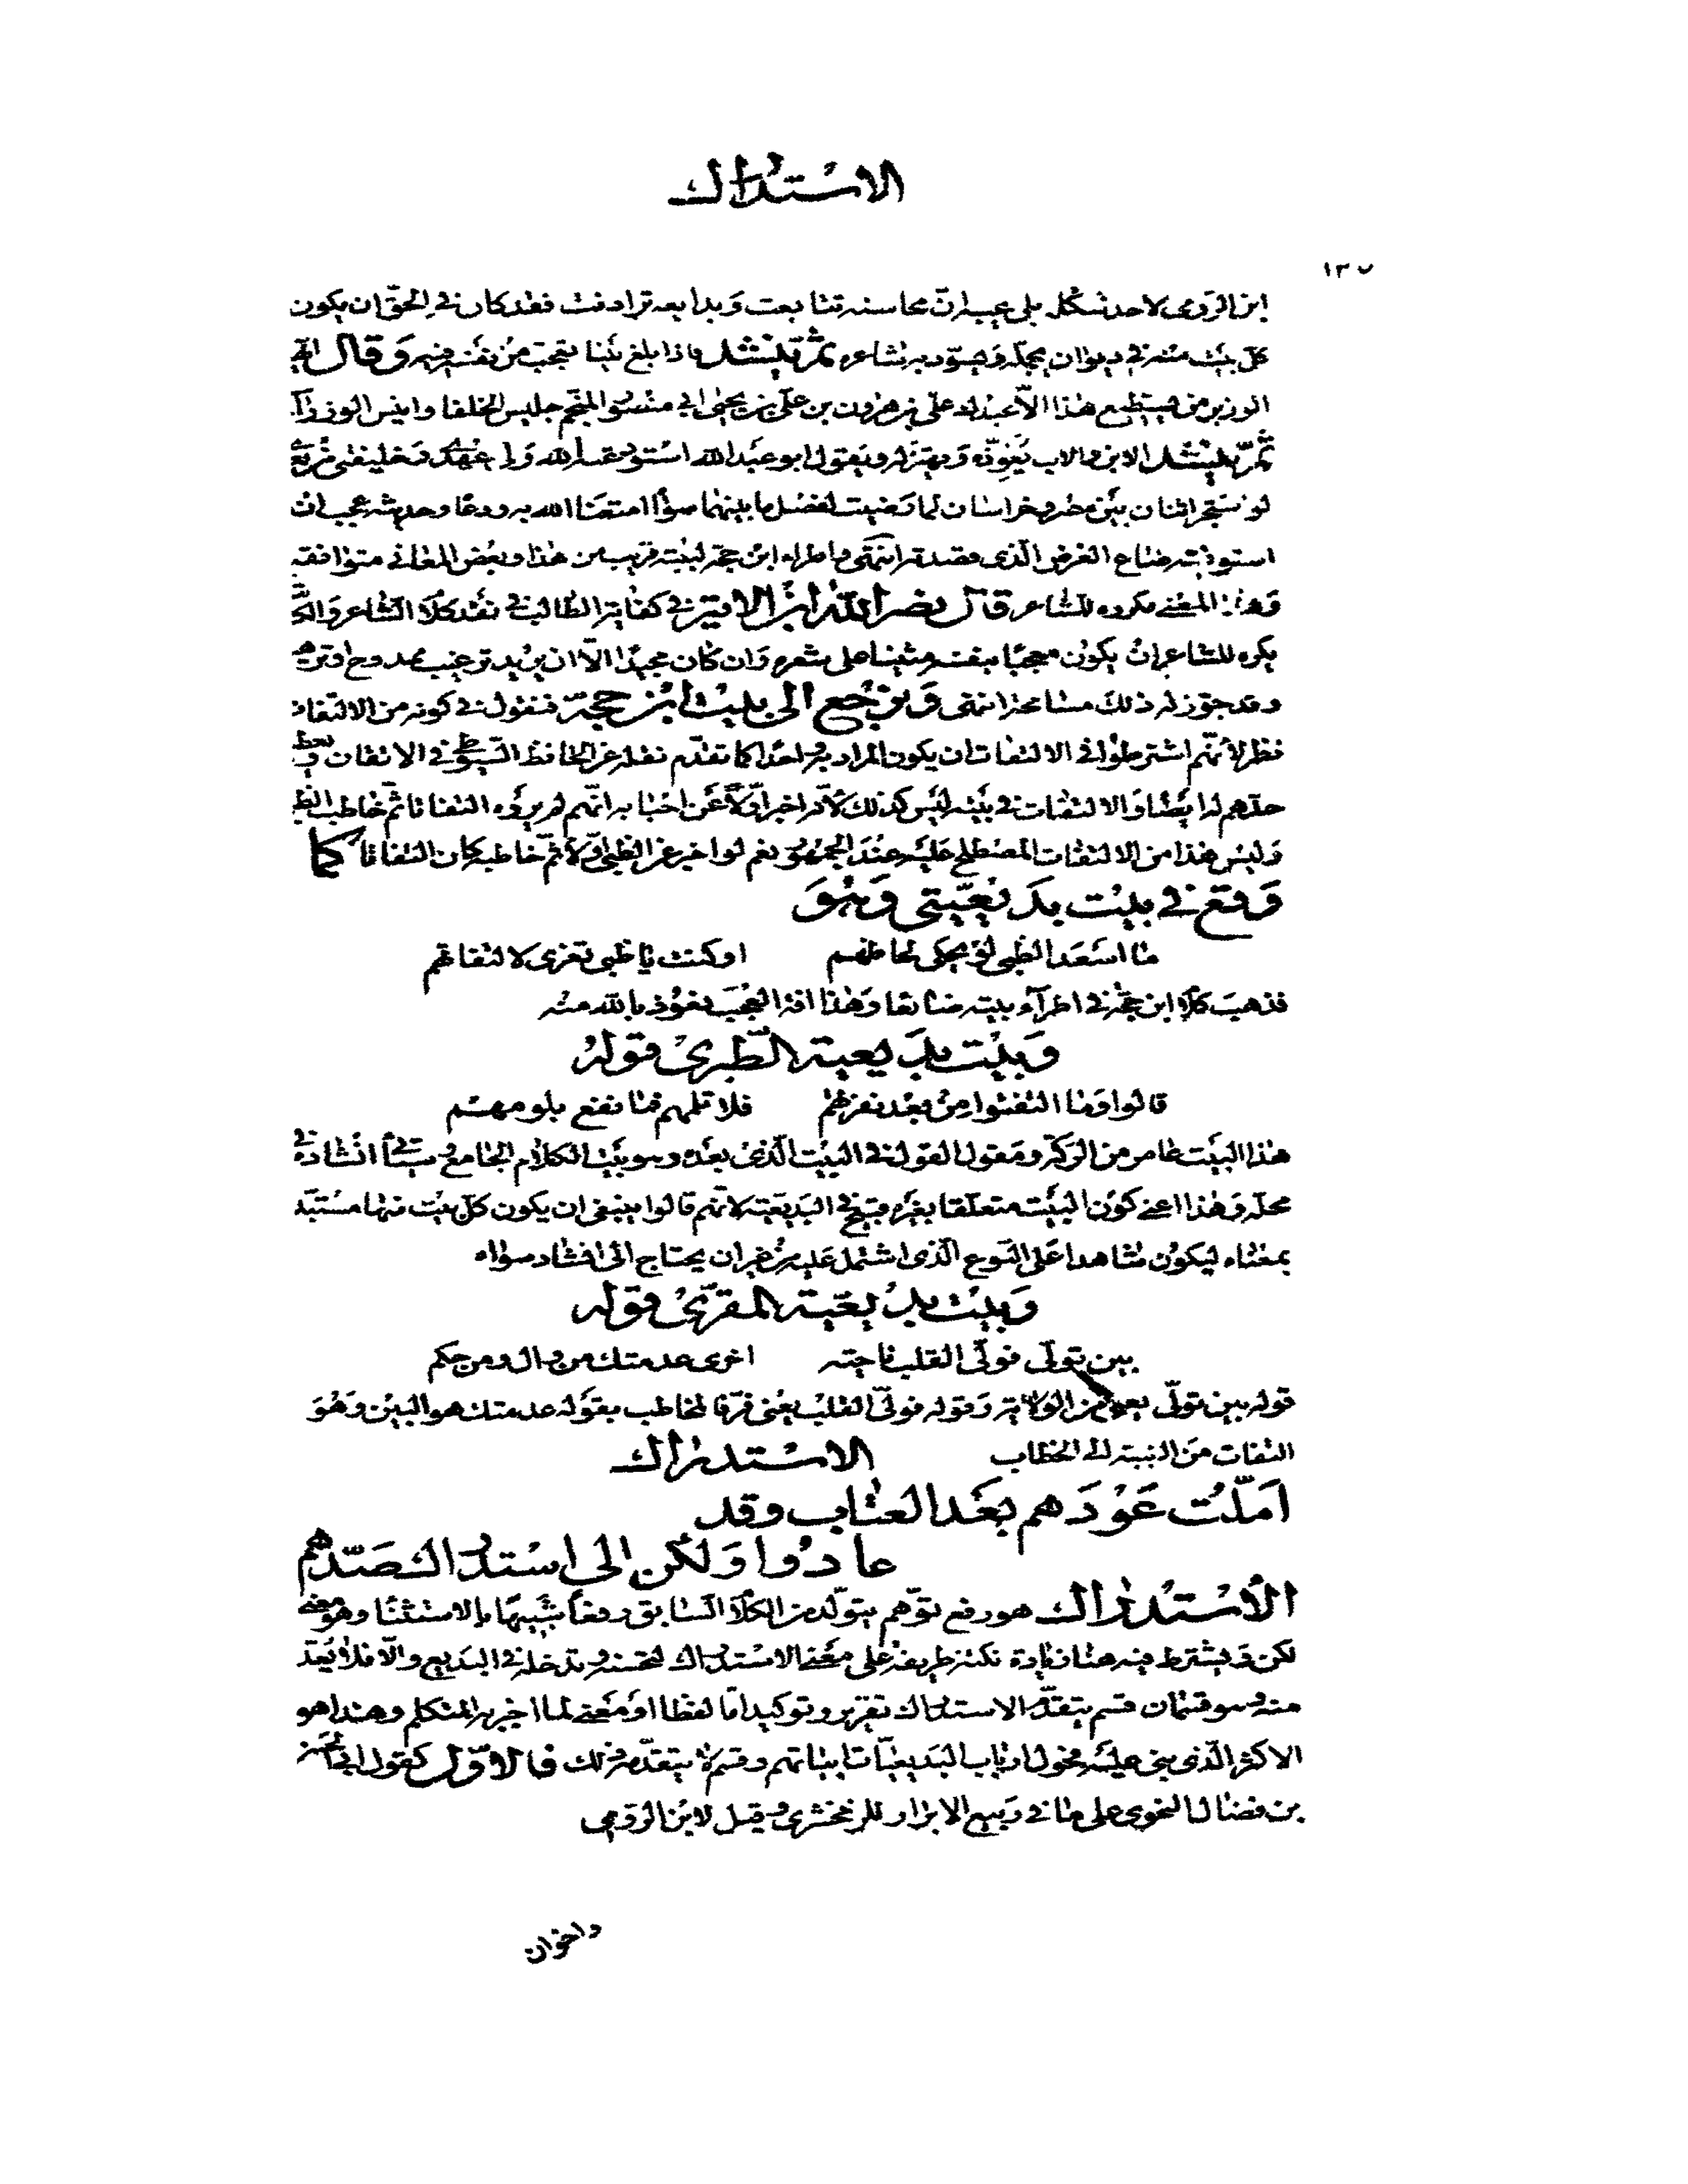 الاستدراك
١٣٠
ابن الرومي لاحد نشكل بلى عجب ان محاسنه تتابعت وبدايعه ترادفت فقد كان في الحق ان يكون
كل بيت منه في ديوان يجمله ويسود به شاعره ثم ينشد فاذا بلغ بيتا يتعجب من نفسه فيه وقال
الوزير من يستطيع هذا الا عبدك علي بن هرون بن علي بن يحيى ابي منصور المنجم جليس الخلفا وانيس الوزرآ
ثم ينشد الابن والاب يعوذه ويهتز له ويقول ابو عبد الله استودعه الله ولي عهدك وخليفتي من بعدك
لو شجر اثنان بين مصر وخراسان لما رضيت لفصل ما بينهما سواه امتعنا الله به ورعاه وحديثه عجب ان
استوفيته ضاع الغرض الذي قصدته انتهى واطراء ابن حجة لبيته قريب من هذا وبعض المعاني متوافقه
وهذا المعنى مكروه للشاعر قال نصر الله ابن الاثير في كفاية الطالب في نقد كلام الشاعر والكاتب
يكره للشاعر ان يكون معجبا بنفسه مثنيا على شعره وان كان مجيدا الا ان يريد ترغيب ممدوح او ترهيبه
وقد جوز له ذلك مسامحة انتهى ونرجع الى بيت ابن حجة فنقول في كونه من الالتفات
نظر لانهم اشترطوا في الالتفات ان يكون المراد به واحدا كما تقدم نقله عن الحافظ السيوطي في الاتقان
حدهم له ايضا والالتفات في بيته ليس كذلك لانه اخبر اولا عن احبابه انهم لم يروه التفاتا ثم خاطب الظبي
وليس هذا من الالتفات المصطلح عليه عند الجمهور نعم لو اخبر عن الظبي اولا ثم خاطبه كان التفاتا كما
وقع في بيت بديعيتي وهو
ما اسعد الظبي لو يحكي لحاظهم او كنت يا ظبي تعزى لالتفاتهم
فذهب كلام ابن حجة في اطرآء بيته ضائعا وهذا افة العجب نعوذ بالله منه
وبيت بديعية الطبري قوله
قالوا وما التفتوا من بعد نفرهم فلا تلمهم فما نفع بلومهم
هذا البيت عامر من الركة ومقول القول في البيت الذي بعده وهو بيت الكلام الجامع وسيأتي انشاده في
محله وهذا اعني كون البيت متعلقا بغيره قبيح في البديعية لانهم قالوا ينبغي ان يكون كل بيت منها مستبدا
بمعناه ليكون شاهدا على النوع الذي اشتمل عليه من غير ان يحتاج الى انشاد سواه
وبيت بديعية المقري قوله
بين تولى فولى القلب ناحية اخرى عدمتك من وال ومن حكم
قوله بين تولى يعني من الولاية وقوله فولى القلب يعني فرقا لمخاطب بقوله عدمتك هو البين وهو
التفات من الغيبة الى الخطاب الاستدراك
املت عودهم بعد العتاب وقد
عادوا ولكن الى استدراك صدهم
الاستدراك هو رفع توهم يتولد من الكلام السابق رفعا شبيها بالاستثنا وهو معنى
لكن ويشترط فيه هنا زيادة نكتة طريفة على معنى الاستدراك لتحسنه وتدخله في البديع والا فلا يعد
منه وهو قسمان قسم يتقدم الاستدراك تقرير وتوكيد اما لفظا او معنى لما اخبر به المتكلم وهذا هو
الاكثر الذي بنى عليه فحول ارباب البديعيات ابياتهم وقسم لا يتقدمه ذلك فالاول كقول ابي الحسن
بن فضال النحوي على ما في ربيع الابرار للزمخشري وقيل لابن الرومي
واخوان